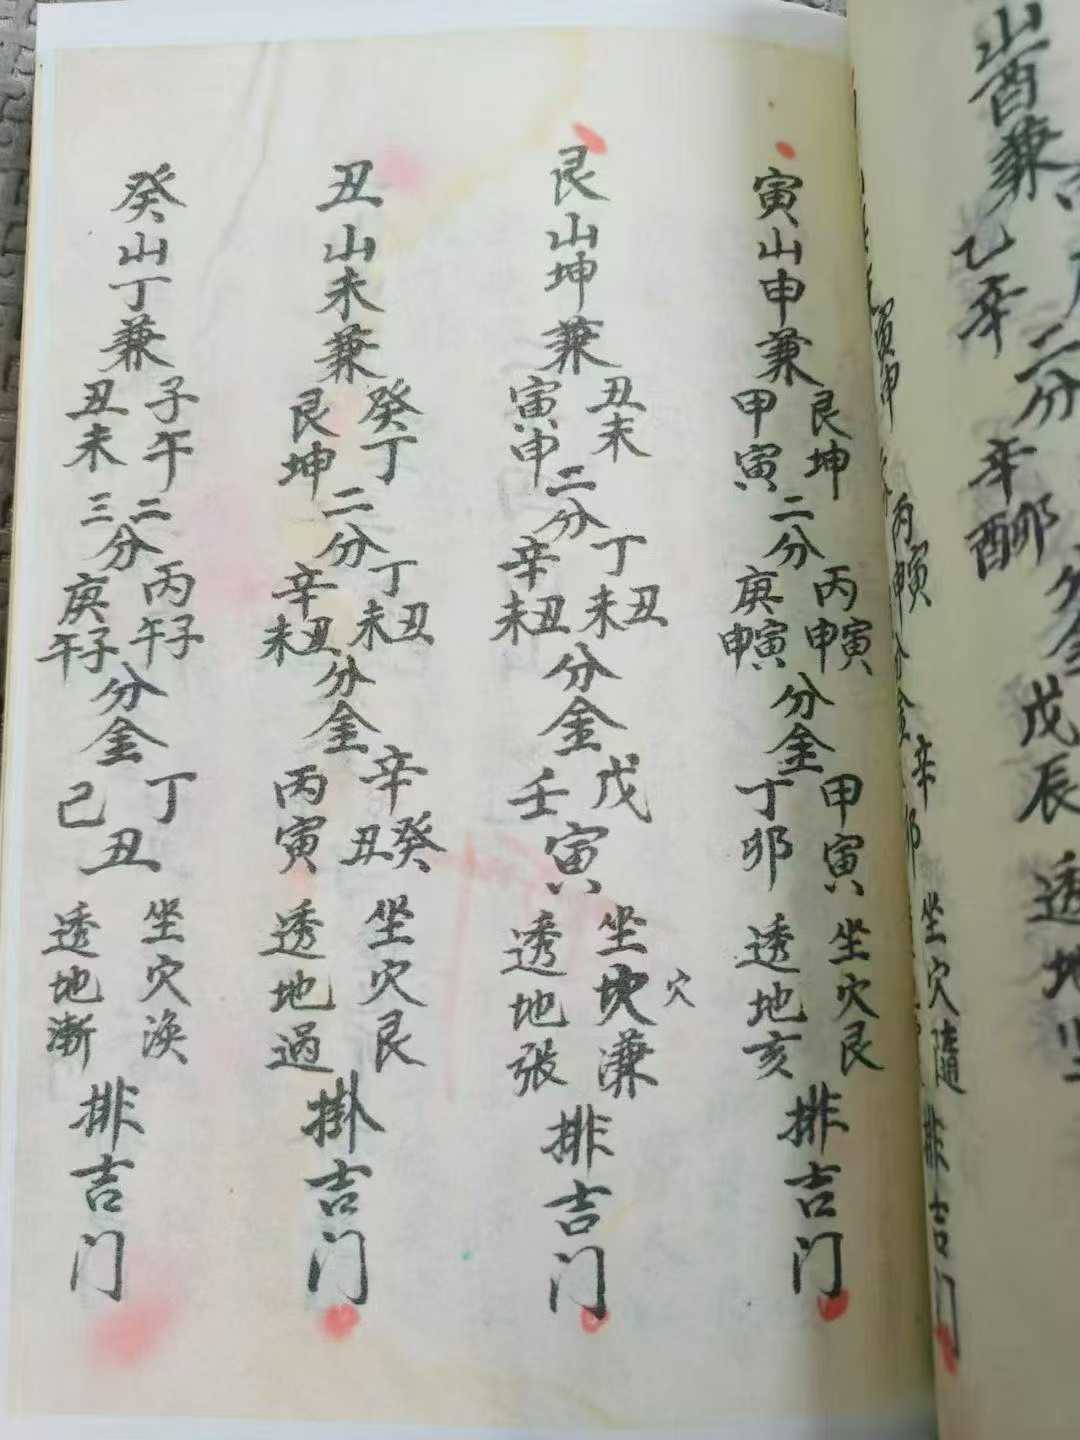 山酉兼
乙辛
二分
辛酉卯
戊辰
透地
寅申
丙申寅
分金
辛卯
坐穴隨
排吉门
寅山申兼
艮坤
甲寅
二分
丙申寅
庚申寅
分金
甲寅
丁卯
坐穴艮
透地亥
排吉门
艮山坤兼
丑未
寅申
二分
丁未丑
辛未丑
分金
戊
壬
寅
坐坎穴濂
透地張
排吉门
丑山未兼
癸丁
艮坤
二分
丁未丑
辛未丑
分金
辛丑癸
丙寅
坐穴艮
透地過
掛吉门
癸山丁兼
子午
丑未
二
三
分
丙午子
庚午子
分金
丁
己
丑
坐穴渙
透地漸
排吉门